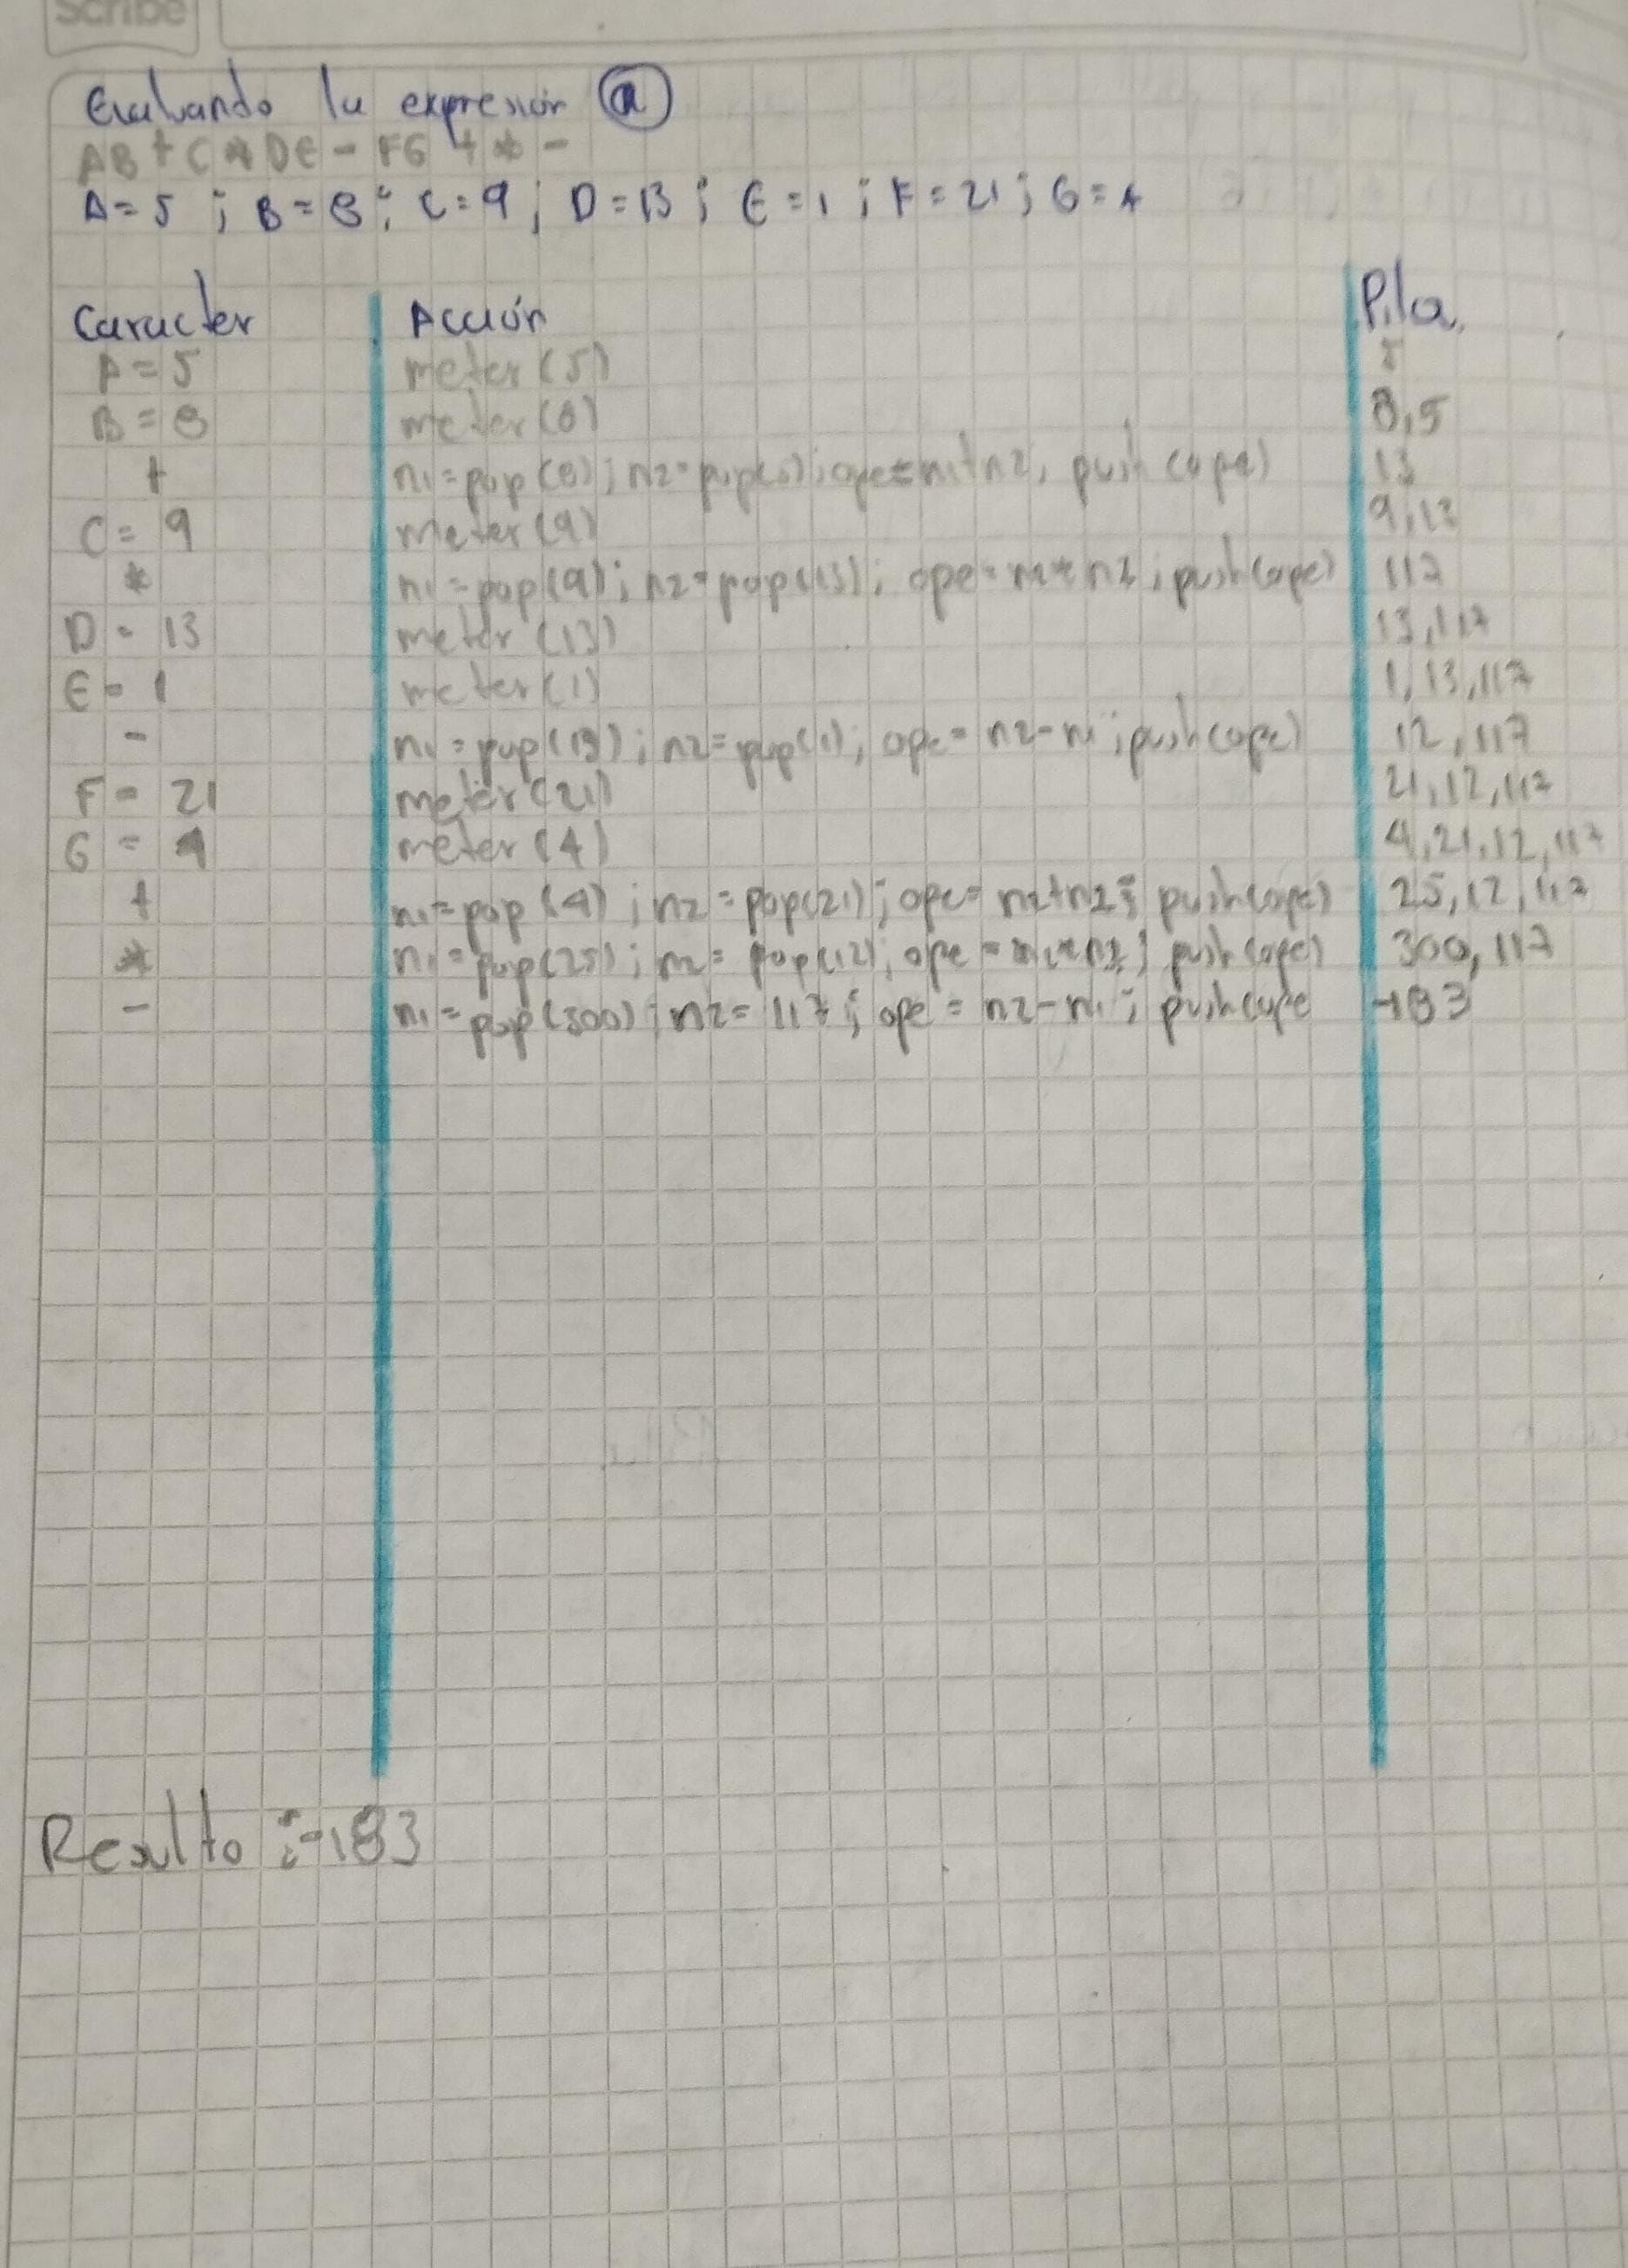 Scribe
Evaluando la expresión (a)
AB+C*DE-FG+*-
A=5 ; B=8 ; C=9 ; D=13 ; E=1 ; F=21 ; G=4
Caracter Acción Pila
A=5 meter(5) 5
B=8 meter(8) 8,5
+ n1=pop(8); n2=pop(5); ope=n1+n2, push(ope) 13
C=9 meter(9) 9,13
* n1=pop(9); n2=pop(13); ope=n2*n1; push(ope) 117
D=13 meter(13) 13,117
E=1 meter(1) 1,13,117
- n1=pop(13); n2=pop(1); ope=n2-n1; push(ope) 12,117
F=21 meter(21) 21,12,117
G=4 meter(4) 4,21,12,117
+ n1=pop(4); n2=pop(21); ope=n2+n2; push(ope) 25,12,117
* n1=pop(25); n2=pop(12); ope= push(ope) 300,117
- n1=pop(300); n2=117; ope=n2-n1; push(ope -183
Resulto : -183